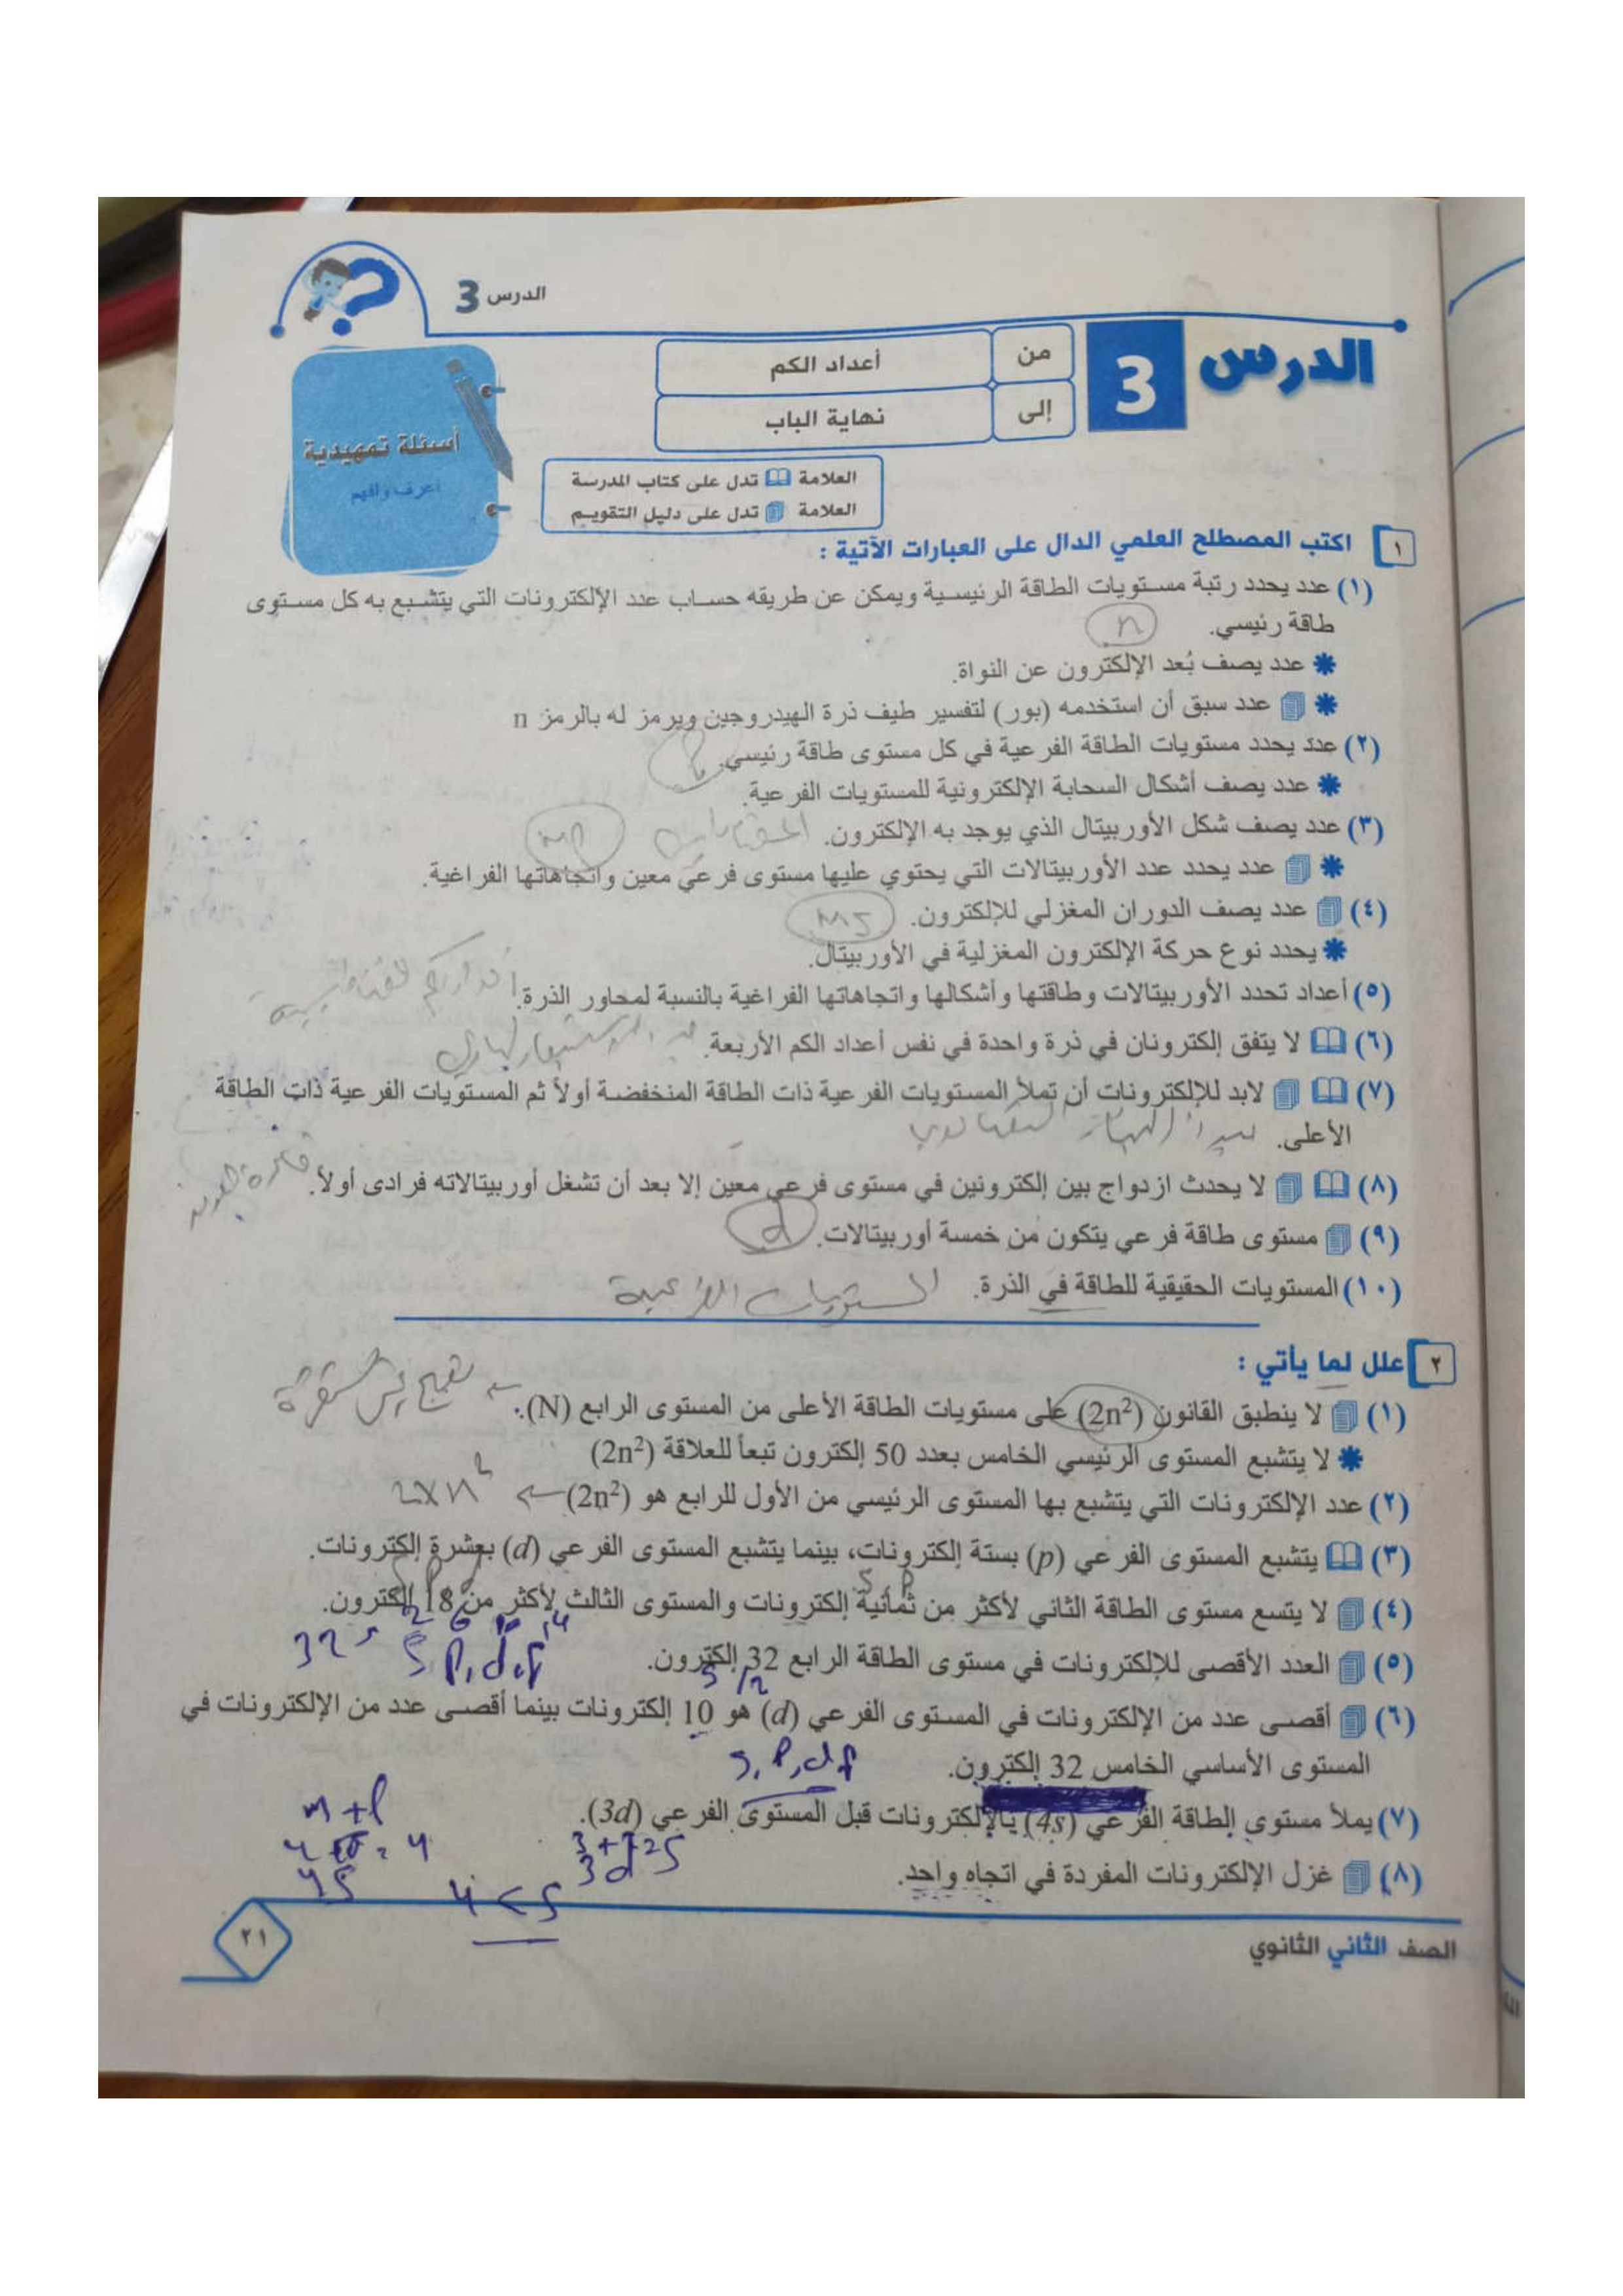 الدرس 3
الدرس 3
من أعداد الكم
إلى نهاية الباب
أسئلة تمهيدية
اعرف وافهم
العلامة تدل على كتاب المدرسة
العلامة تدل على دليل التقويم
١ اكتب المصطلح العلمي الدال على العبارات الآتية :
(١) عدد يحدد رتبة مستويات الطاقة الرئيسية ويمكن عن طريقه حساب عدد الإلكترونات التي يتشبع به كل مستوى
طاقة رئيسي. n
* عدد يصف بُعد الإلكترون عن النواة.
* عدد سبق أن استخدمه (بور) لتفسير طيف ذرة الهيدروجين ويرمز له بالرمز n
(٢) عدد يحدد مستويات الطاقة الفرعية في كل مستوى طاقة رئيسي.
* عدد يصف أشكال السحابة الإلكترونية للمستويات الفرعية.
(٣) عدد يصف شكل الأوربيتال الذي يوجد به الإلكترون.
* عدد يحدد عدد الأوربيتالات التي يحتوي عليها مستوى فرعي معين واتجاهاتها الفراغية.
(٤) عدد يصف الدوران المغزلي للإلكترون. ms
* يحدد نوع حركة الإلكترون المغزلية في الأوربيتال.
(٥) أعداد تحدد الأوربيتالات وطاقتها وأشكالها واتجاهاتها الفراغية بالنسبة لمحاور الذرة.
(٦) لا يتفق إلكترونان في ذرة واحدة في نفس أعداد الكم الأربعة.
(٧) لابد للإلكترونات أن تملأ المستويات الفرعية ذات الطاقة المنخفضة أولاً ثم المستويات الفرعية ذات الطاقة
الأعلى.
(٨) لا يحدث ازدواج بين إلكترونين في مستوى فرعي معين إلا بعد أن تشغل أوربيتالاته فرادى أولاً.
(٩) مستوى طاقة فرعي يتكون من خمسة أوربيتالات. d
(١٠) المستويات الحقيقية للطاقة في الذرة. المستويات الفرعية
٢ علل لما يأتي :
(١) لا ينطبق القانون (2n²) على مستويات الطاقة الأعلى من المستوى الرابع (N).
* لا يتشبع المستوى الرئيسي الخامس بعدد 50 إلكترون تبعاً للعلاقة (2n²)
(٢) عدد الإلكترونات التي يتشبع بها المستوى الرئيسي من الأول للرابع هو (2n²)
(٣) يتشبع المستوى الفرعي (p) بستة إلكترونات، بينما يتشبع المستوى الفرعي (d) بعشرة إلكترونات.
(٤) لا يتسع مستوى الطاقة الثاني لأكثر من ثمانية إلكترونات والمستوى الثالث لأكثر من 18 إلكترون.
(٥) العدد الأقصى للإلكترونات في مستوى الطاقة الرابع 32 إلكترون.
(٦) أقصى عدد من الإلكترونات في المستوى الفرعي (d) هو 10 إلكترونات بينما أقصى عدد من الإلكترونات في
المستوى الأساسي الخامس 32 إلكترون. s, p, d f
(٧) يملأ مستوى الطاقة الفرعي (4s) بالإلكترونات قبل المستوى الفرعي (3d).
(٨) غزل الإلكترونات المفردة في اتجاه واحد.
4 < 5
الصف الثاني الثانوي
٢١